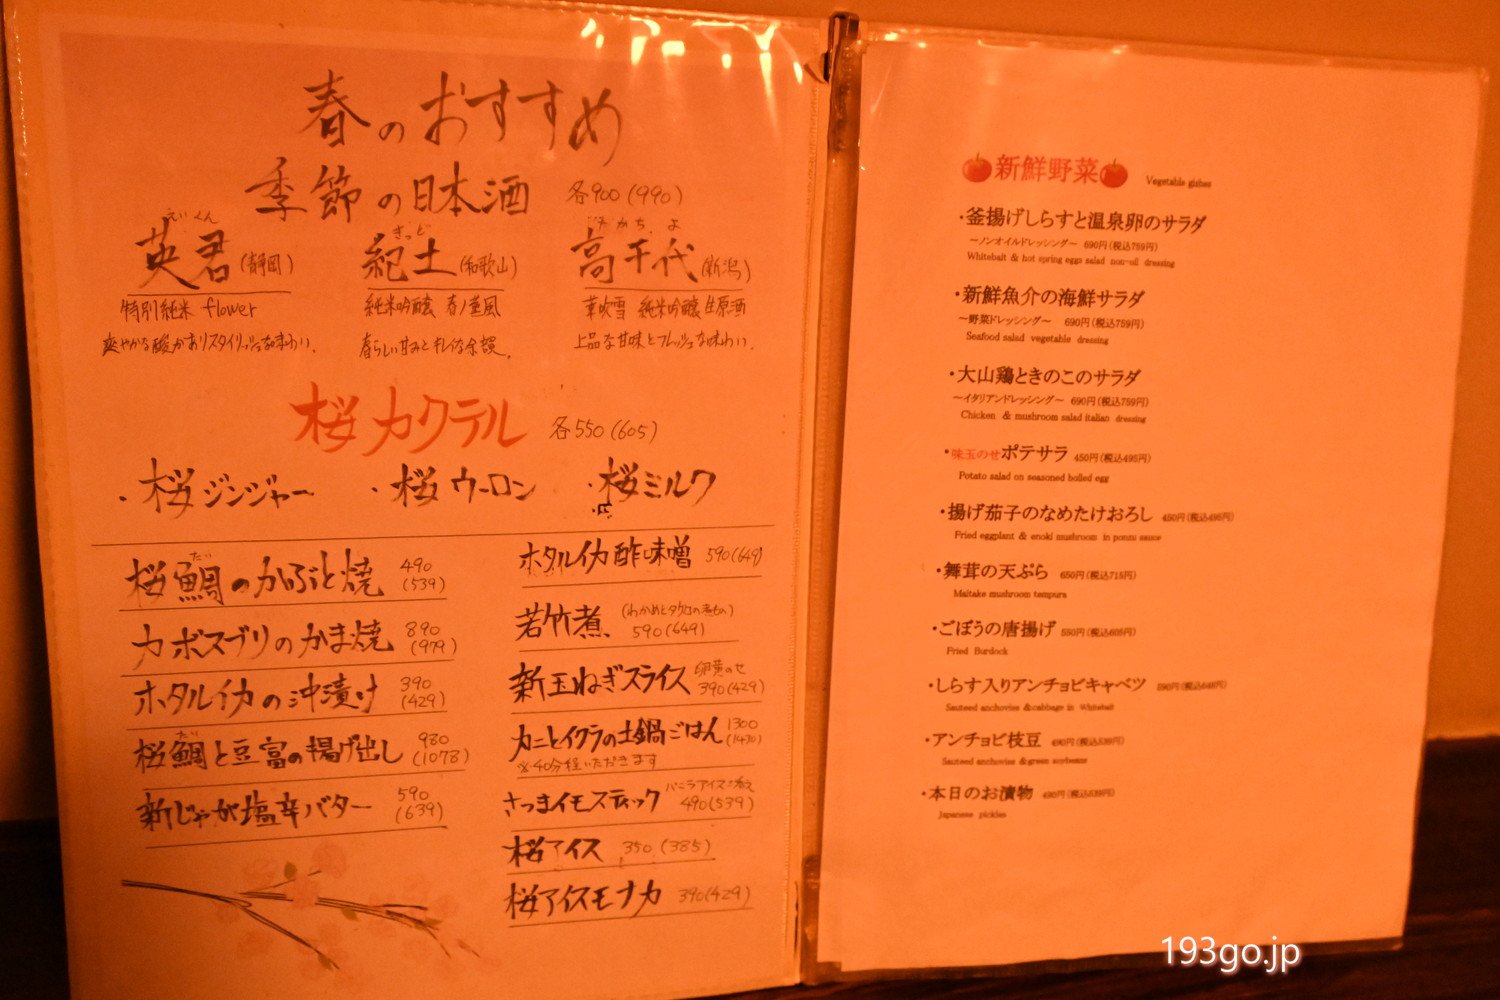 春のおすすめ
季節の日本酒 各900(990)
えいくん
英君(静岡)
特別純米 flower
爽やかな酸がありスタイリッシュな味わい。
きっど
紀土(和歌山)
純米吟醸 春ノ薫風
春らしい甘みとキレイな余韻。
たかちよ
高千代(新潟)
華吹雪 純米吟醸生原酒
上品な甘味とフレッシュな味わい。
桜カクテル 各550(605)
・桜ジンジャー ・桜ウーロン ・桜ミルク
桜鯛のかぶと焼 490(539)
カボスブリのかま焼 890(979)
ホタルイカの沖漬け 390(429)
桜鯛と豆富の揚げ出し 980(1078)
新じゃが塩辛バター 590(639)
ホタルイカ酢味噌 590(649)
若竹煮 (わかめとタケノコの煮もの) 590(649)
新玉ねぎスライス 卵黄のせ 390(429)
カニとイクラの土鍋ごはん 1300(1430)
※40分程いただきます
さつまイモスティック バニラアイス添え 490(539)
桜アイス 350(385)
桜アイスモナカ 390(429)
新鮮野菜 Vegetable gishes
・釜揚げしらすと温泉卵のサラダ
～ノンオイルドレッシング～ 690円(税込759円)
Whitebait & hot spring eggs salad non-oil dressing
・新鮮魚介の海鮮サラダ
～野菜ドレッシング～ 690円(税込759円)
Seafood salad vegetable dressing
・大山鶏ときのこのサラダ
～イタリアンドレッシング～ 690円(税込759円)
Chicken & mushroom salad italian dressing
・味玉のせポテサラ 450円(税込495円)
Potato salad on seasoned boiled egg
・揚げ茄子のなめたけおろし 450円(税込495円)
Fried eggplant & enoki mushroom in ponzu sauce
・舞茸の天ぷら 650円(税込715円)
Maitake mushroom tempura
・ごぼうの唐揚げ 550円(税込605円)
Fried Burdock
・しらす入りアンチョビキャベツ 590円(税込649円)
Sauteed anchovies &cabbage in Whitebait
・アンチョビ枝豆 490円(税込539円)
Sauteed anchovies &green soybeans
・本日のお漬物 490円(税込539円)
Japanese pickles
193go.jp